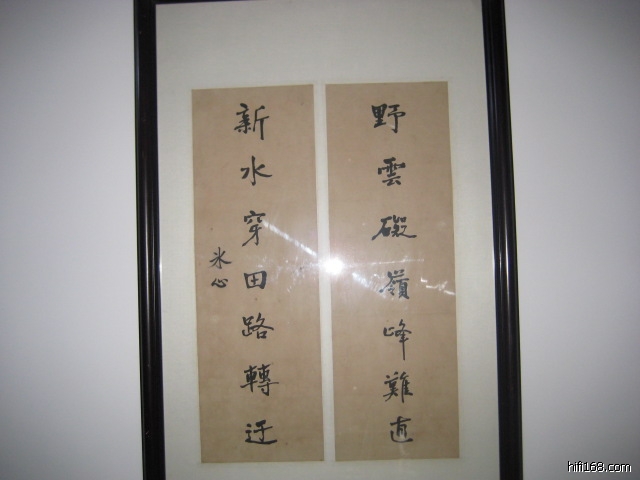 野雲礙嶺峰難直
新水穿田路轉迂
冰心
hifi168.com